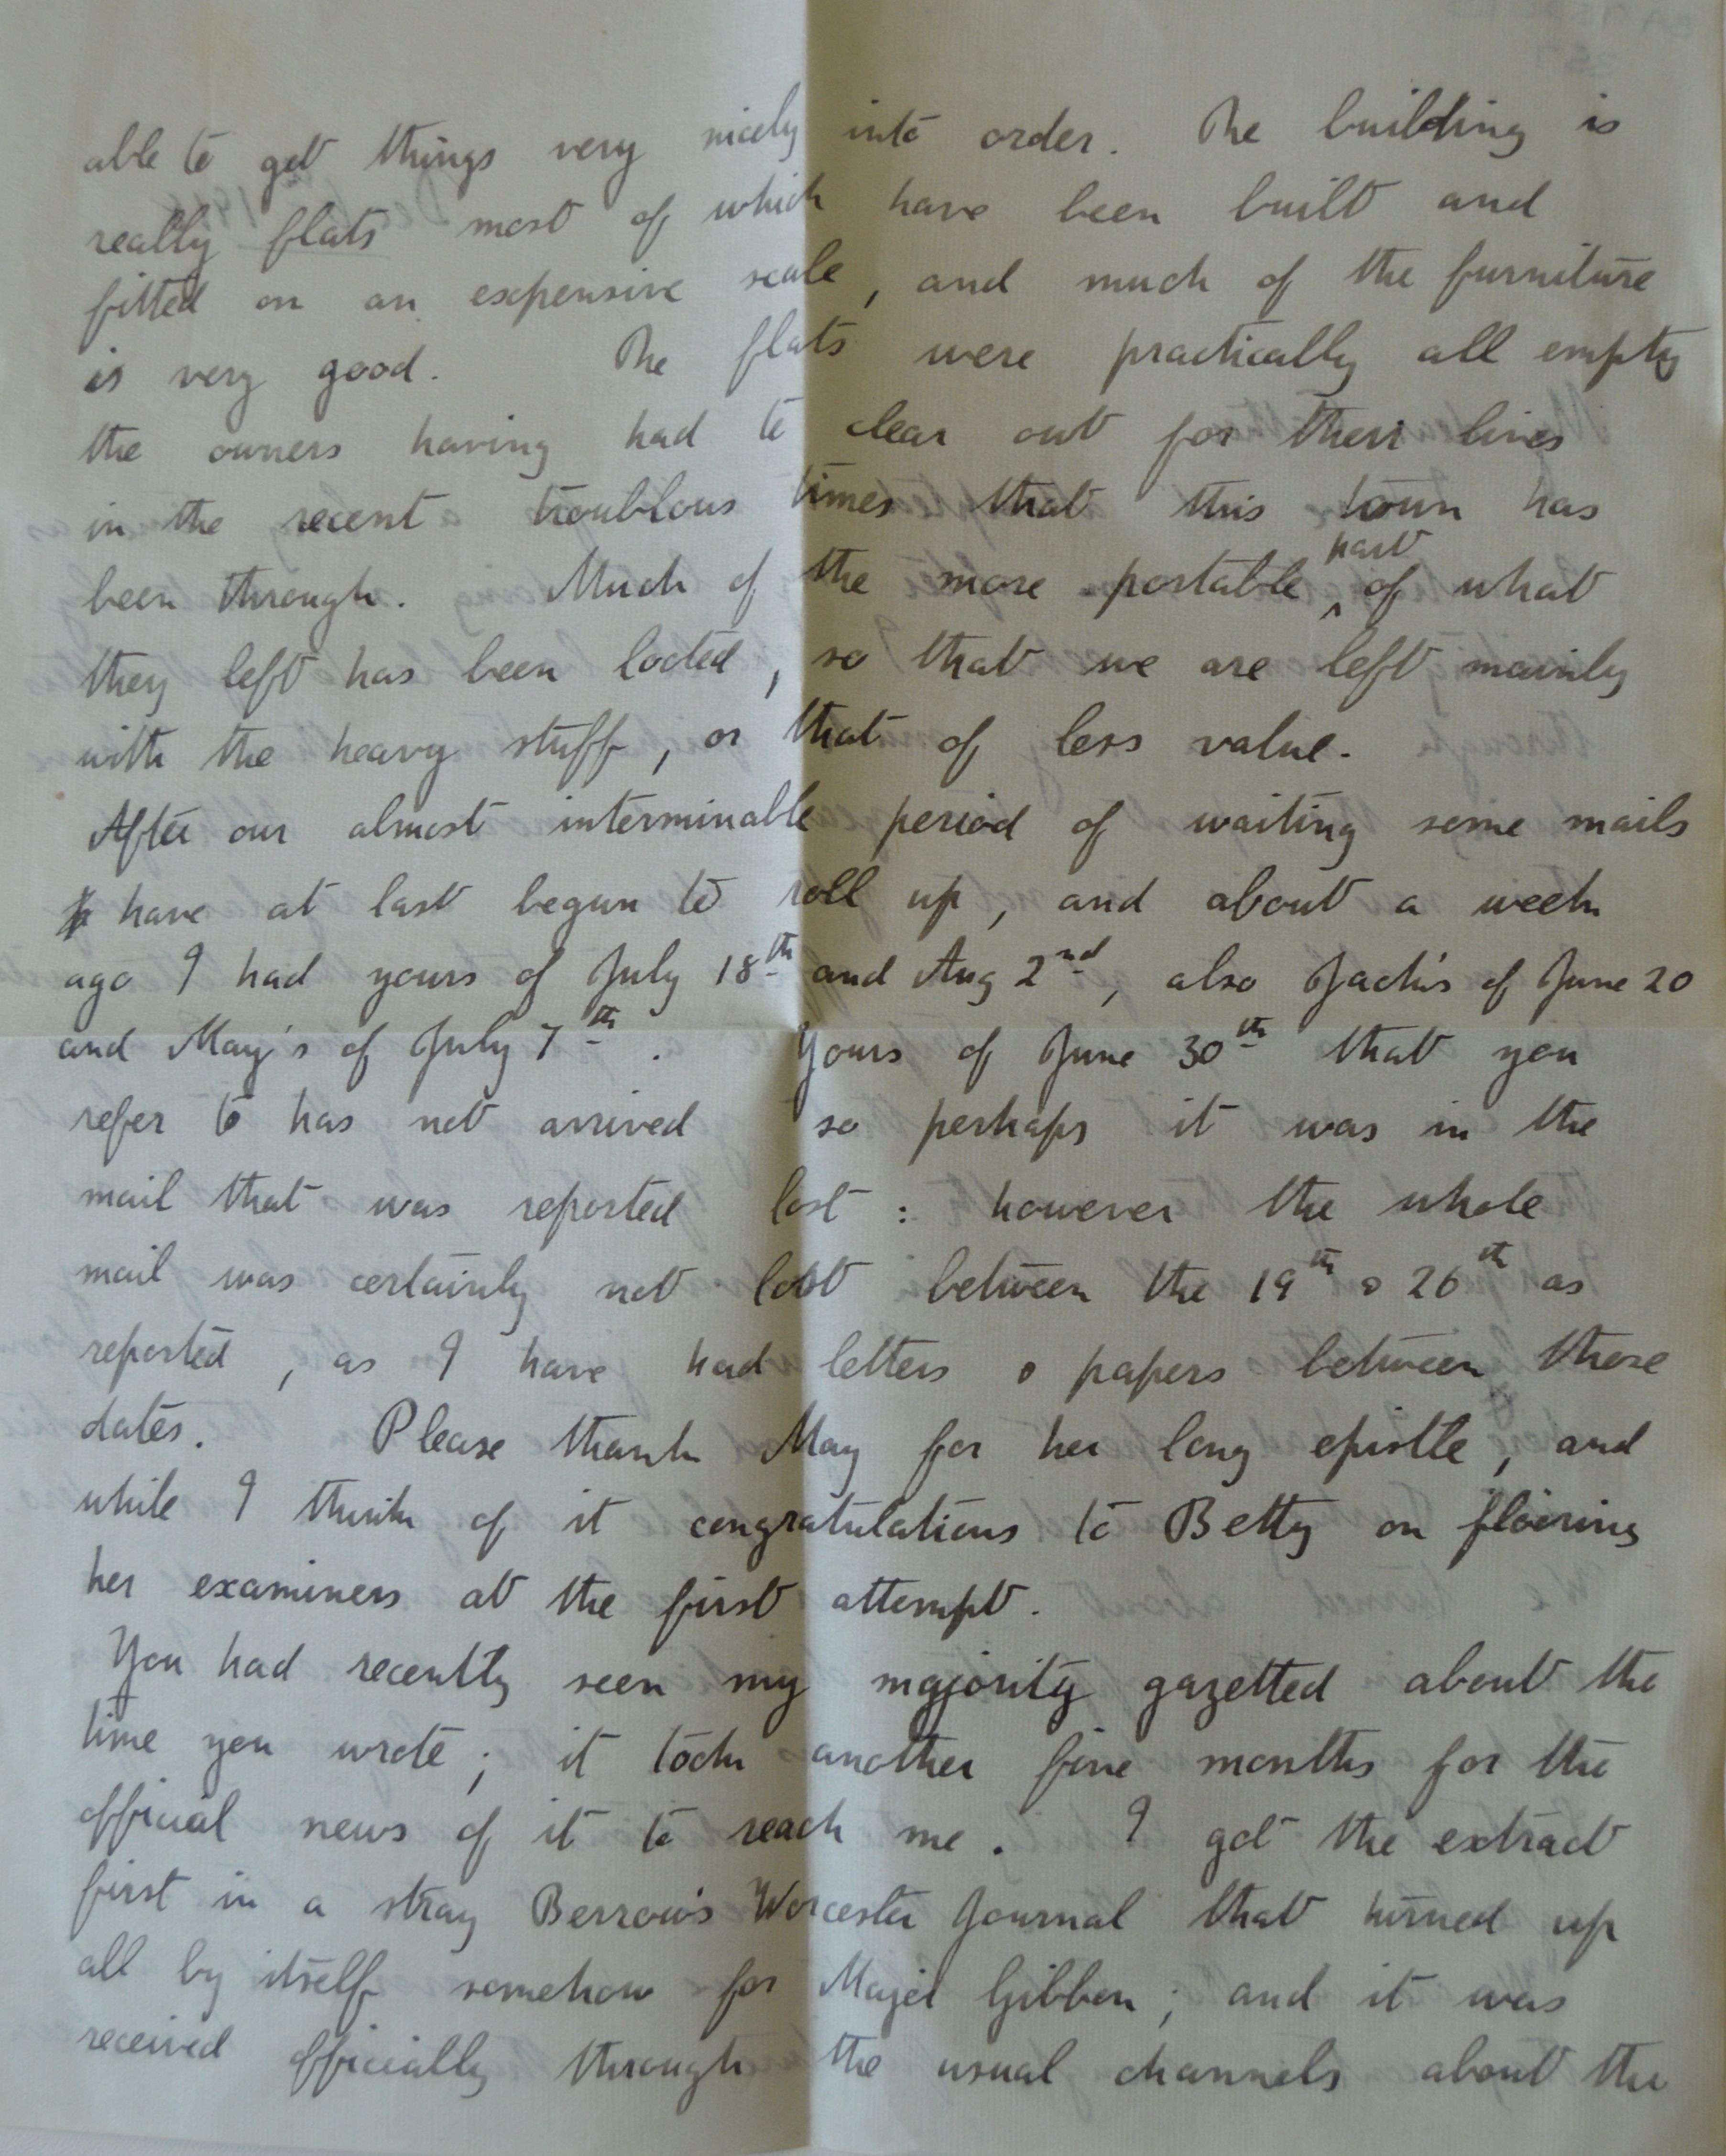 able to get things very nicely into order. The building is
really flats most of which have been built and
fitted on an expensive scale, and much of the furniture
is very good. The flats were practically all empty
the owners having had to clear out for their lives
in the recent troublous times that this town has
been through. Much of the more portable part of what
they left has been looted, so that we are left mainly
with the heavy stuff, or that of less value.
After our almost interminable period of waiting some mails
have at last begun to roll up, and about a week
ago I had yours of July 18th and Aug 2nd, also Jack's of June 20
and May's of July 7th. Yours of June 30th that you
refer to has not arrived so perhaps it was in the
mail that was reported lost: however the whole
mail was certainly not lost between the 19th & 26th as
reported, as I have had letters & papers between those
dates. Please thank May for her long epistle, and
while I think of it congratulations to Betty on flooring
her examiners at the first attempt.
You had recently seen my majority gazetted about the
time you wrote; it took another five months for the
official news of it to reach me. I got the extract
first in a stray Berrow's Worcester Journal that turned up
all by itself somehow for Majel Gibbon; and it was
received officially through the usual channels about the